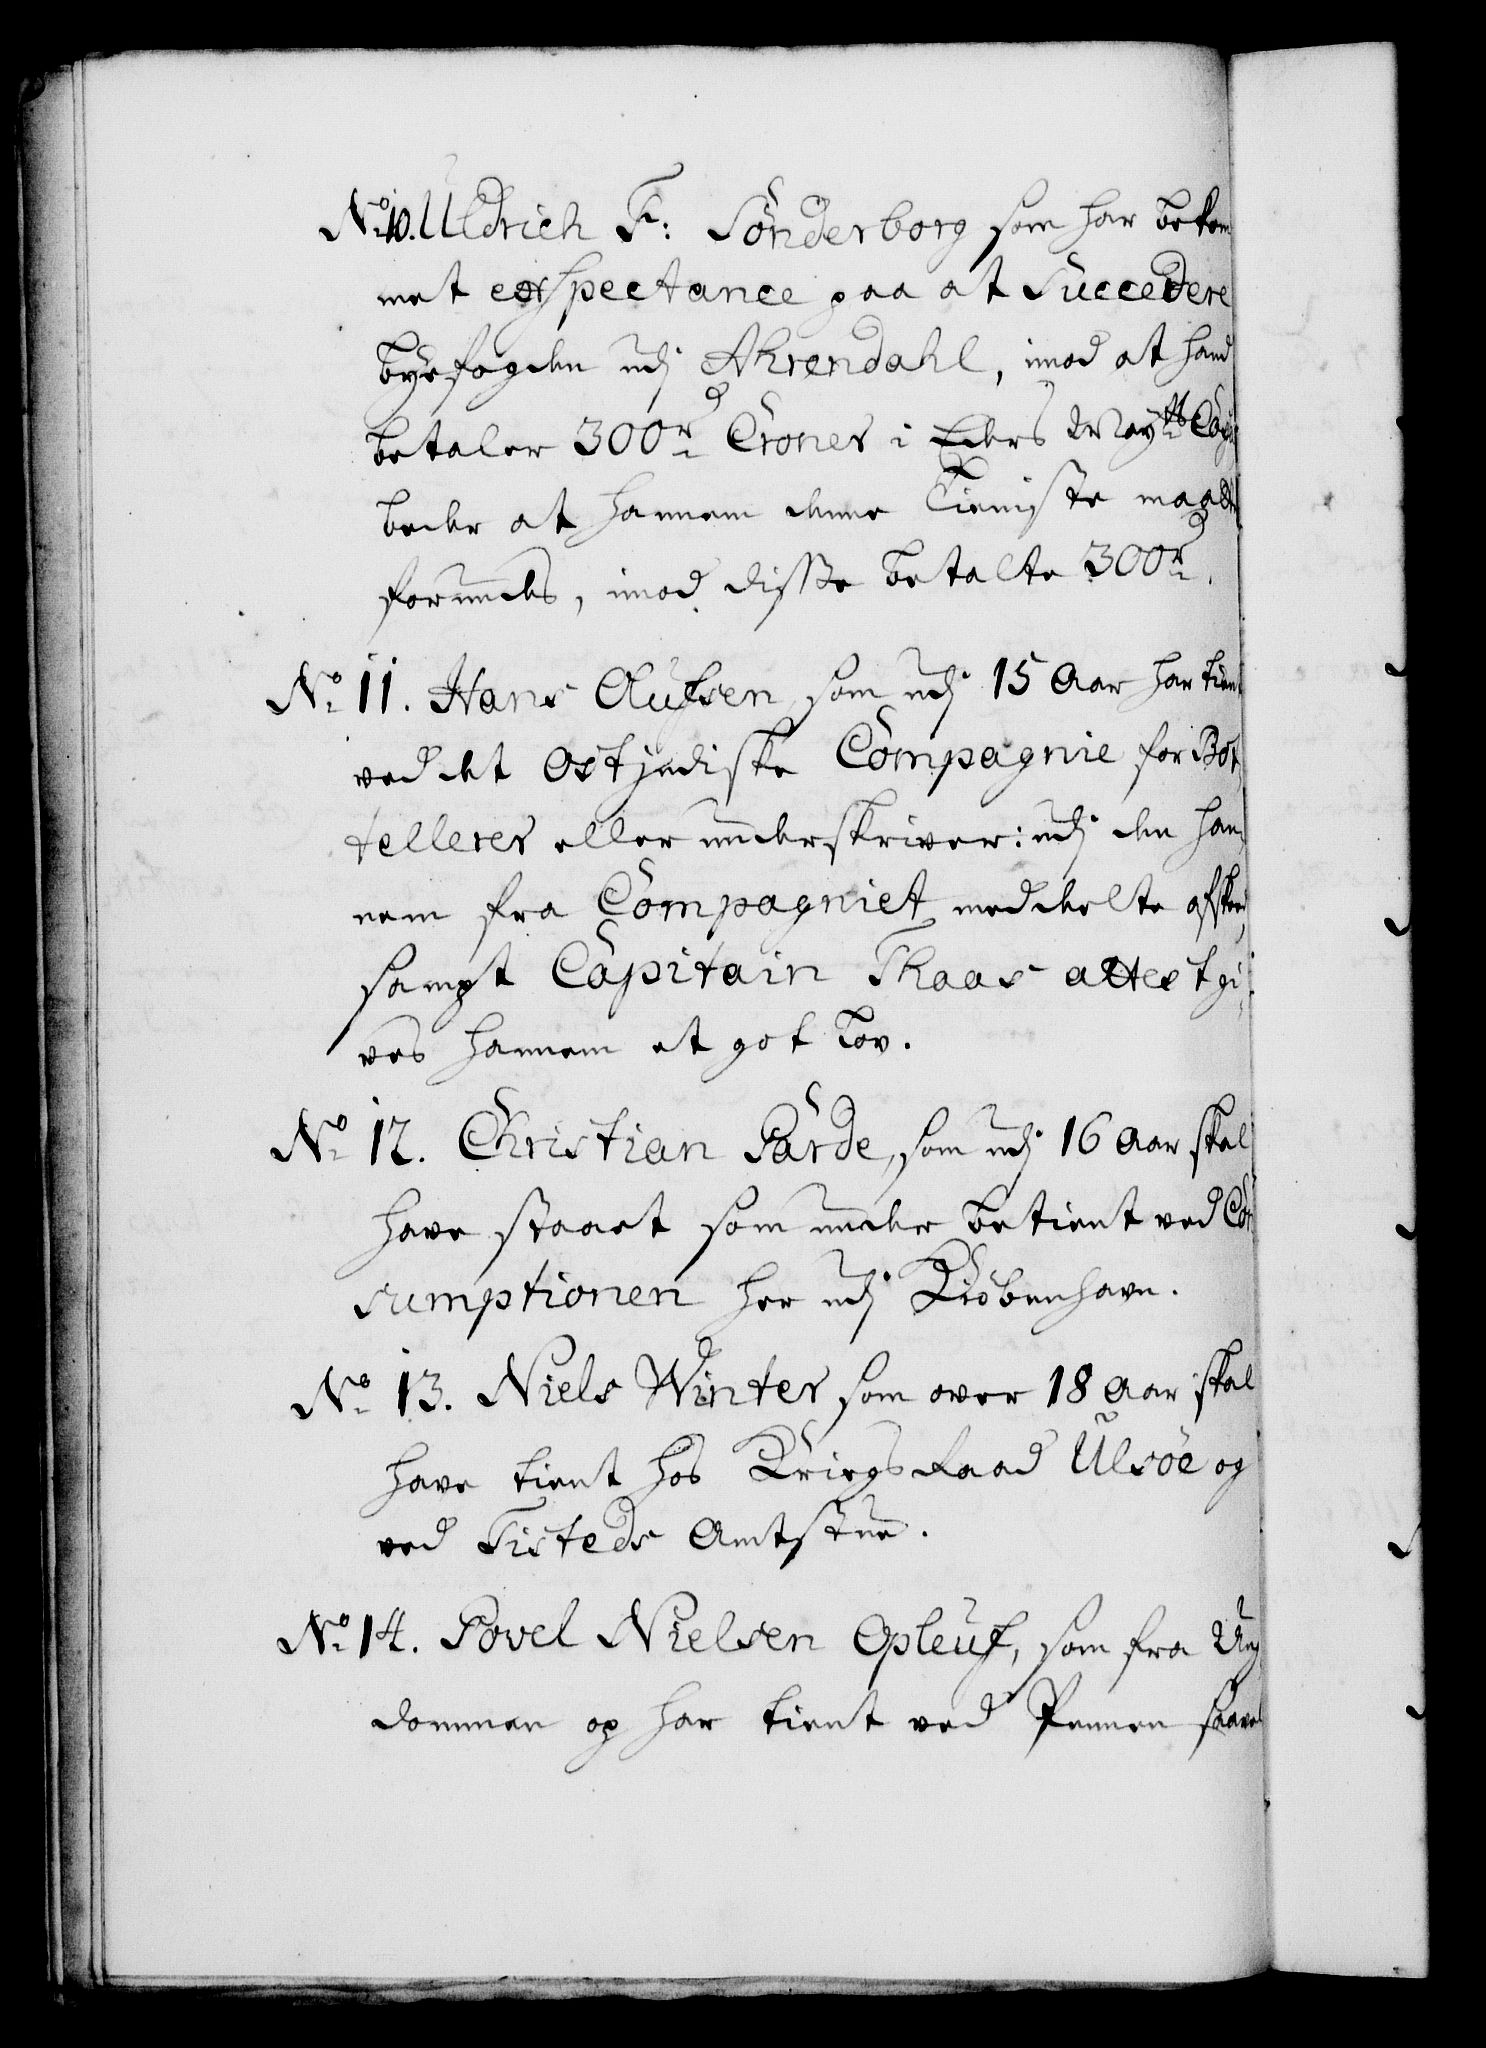 No 10. Uldrich F: Sønderborg som har bekom
met exspectance paa at Succedere
byefogden udj Ahrendahl, imod at hand
betaler 300 rd Croner i Eders Mayts Cassa
beder at hannem denne Tieniste maatte
forundes, imod disse betalte 300 rd.
No 11. Hans Olufsen, som udj 15 Aar har tient
ved det Ostjndiske Compagnie for Bot
tellerer eller underskriver: udj den han
nem fra Compagniet meddeelte afskeed,
sampt Capitain Thaas attest gi
ves hannem et got Lov.
No 12. Christian Parde, som udj 16 Aar skal
have staaet som under betient ved Con
sumptionen her udj Kiøbenhavn.
No 13. Niels Winter som over 18 Aar skal
have tient hos Krigs Raad Ulsøe og
ved Tisteds Amtstue.
No 14. Povel Nielsen Opleuf, som fra Ung
dommen op har tient ved Pennen saavel